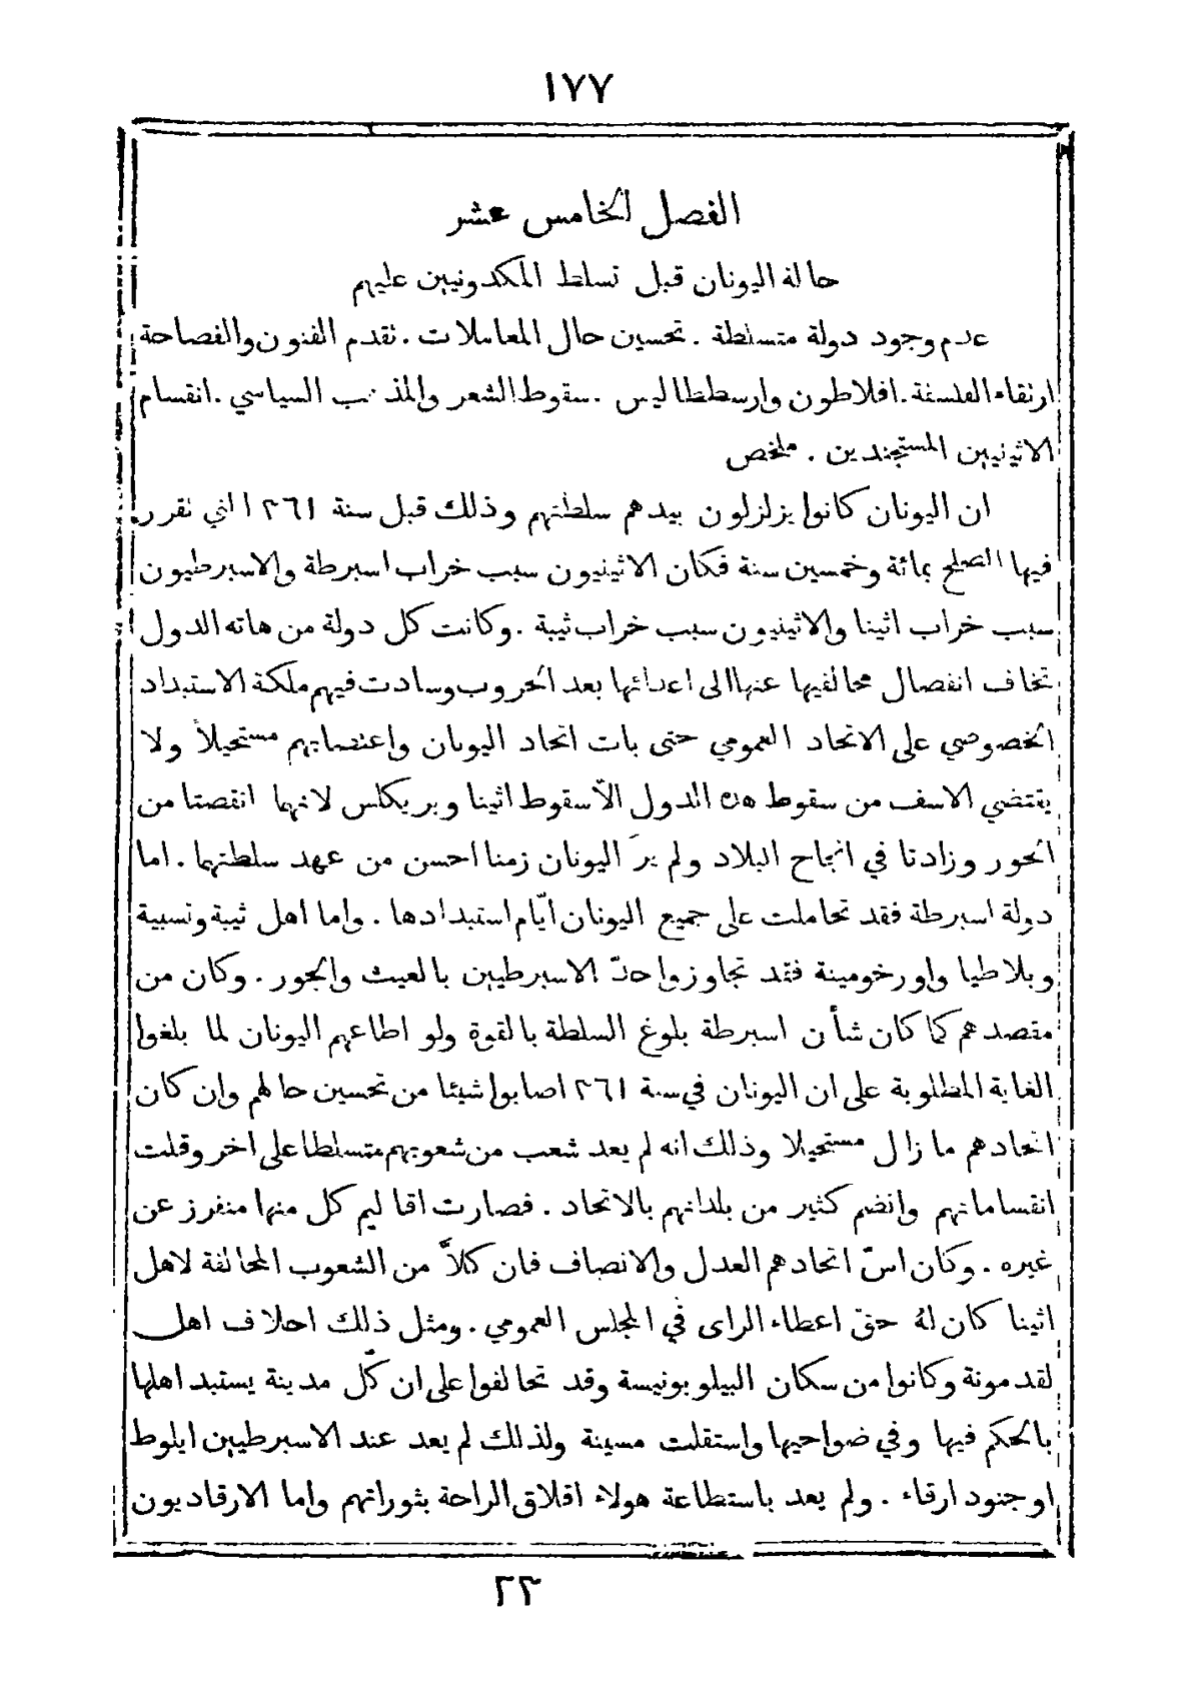 ١٧٧
الفصل الخامس عشر
حالة اليونان قبل تسلط المكدونيين عليهم
عدم وجود دولة متسلطة . تحسين حال المعاملات . نقدم الفنون والفصاحة
ارتقاء الفلسفة . افلاطون وارسططاليس . سقوط الشعر والمذهب السياسي . انقسام
الاثينيين المستجندين . ملخص
ان اليونان كانوا يزلزلون بيدهم سلطتهم وذلك قبل سنة ٣٦١ التي نقرر
فيها الصلح بمائة وخمسين سنة فكان الاثينيون سبب خراب اسبرطة والاسبرطيون
سبب خراب اثينا والاثينيون سبب خراب ثيبة . وكانت كل دولة من هاته الدول
تخاف انفصال محالفيها عنها الى اعدائها بعد الحروب وسادت فيهم ملكة الاستبداد
الخصوصي على الاتحاد العمومي حتى بات اتحاد اليونان واعتصابهم مستحيلاً ولا
يقتضي الاسف من سقوط هذه الدول الاّ سقوط اثينا وبريكلس لانهما انقصتا من
الجور وزادتا في انجاح البلاد ولم يرَ اليونان زمنا احسن من عهد سلطتهما . اما
دولة اسبرطة فقد تحاملت على جميع اليونان ايّام استبدادها . واما اهل ثيبة وتسبية
وبلاطيا واورخومينة فقد تجاوزوا حدّ الاسبرطيين بالعيث والجور . وكان من
مقصدهم كما كان شأن اسبرطة بلوغ السلطة بالقوة ولو اطاعهم اليونان لما بلغوا
الغاية المطلوبة على ان اليونان في سنة ٣٦١ اصابوا شيئا من تحسين حالهم وان كان
اتحادهم ما زال مستحيلا وذلك انه لم يعد شعب من شعوبهم متسلطا على اخر وقلت
انقساماتهم وانضم كثير من بلدانهم بالاتحاد . فصارت اقاليم كل منها منفرز عن
غيره . وكان اسّ اتحادهم العدل والانصاف فان كلاًّ من الشعوب المحالفة لاهل
اثينا كان لهُ حق اعطاء الراى في المجلس العمومي . ومثل ذلك احلاف اهل
لقدمونة وكانوا من سكان البيلوبونيسة وقد تحالفوا على ان كلّ مدينة يستبد اهلها
بالحكم فيها وفي ضواحيها واستقلت مسينة ولذلك لم يعد عند الاسبرطيين ايلوط
او جنود ارقاء . ولم يعد باستطاعة هولاء اقلاق الراحة بثوراتهم واما الارقاديون
٢٣